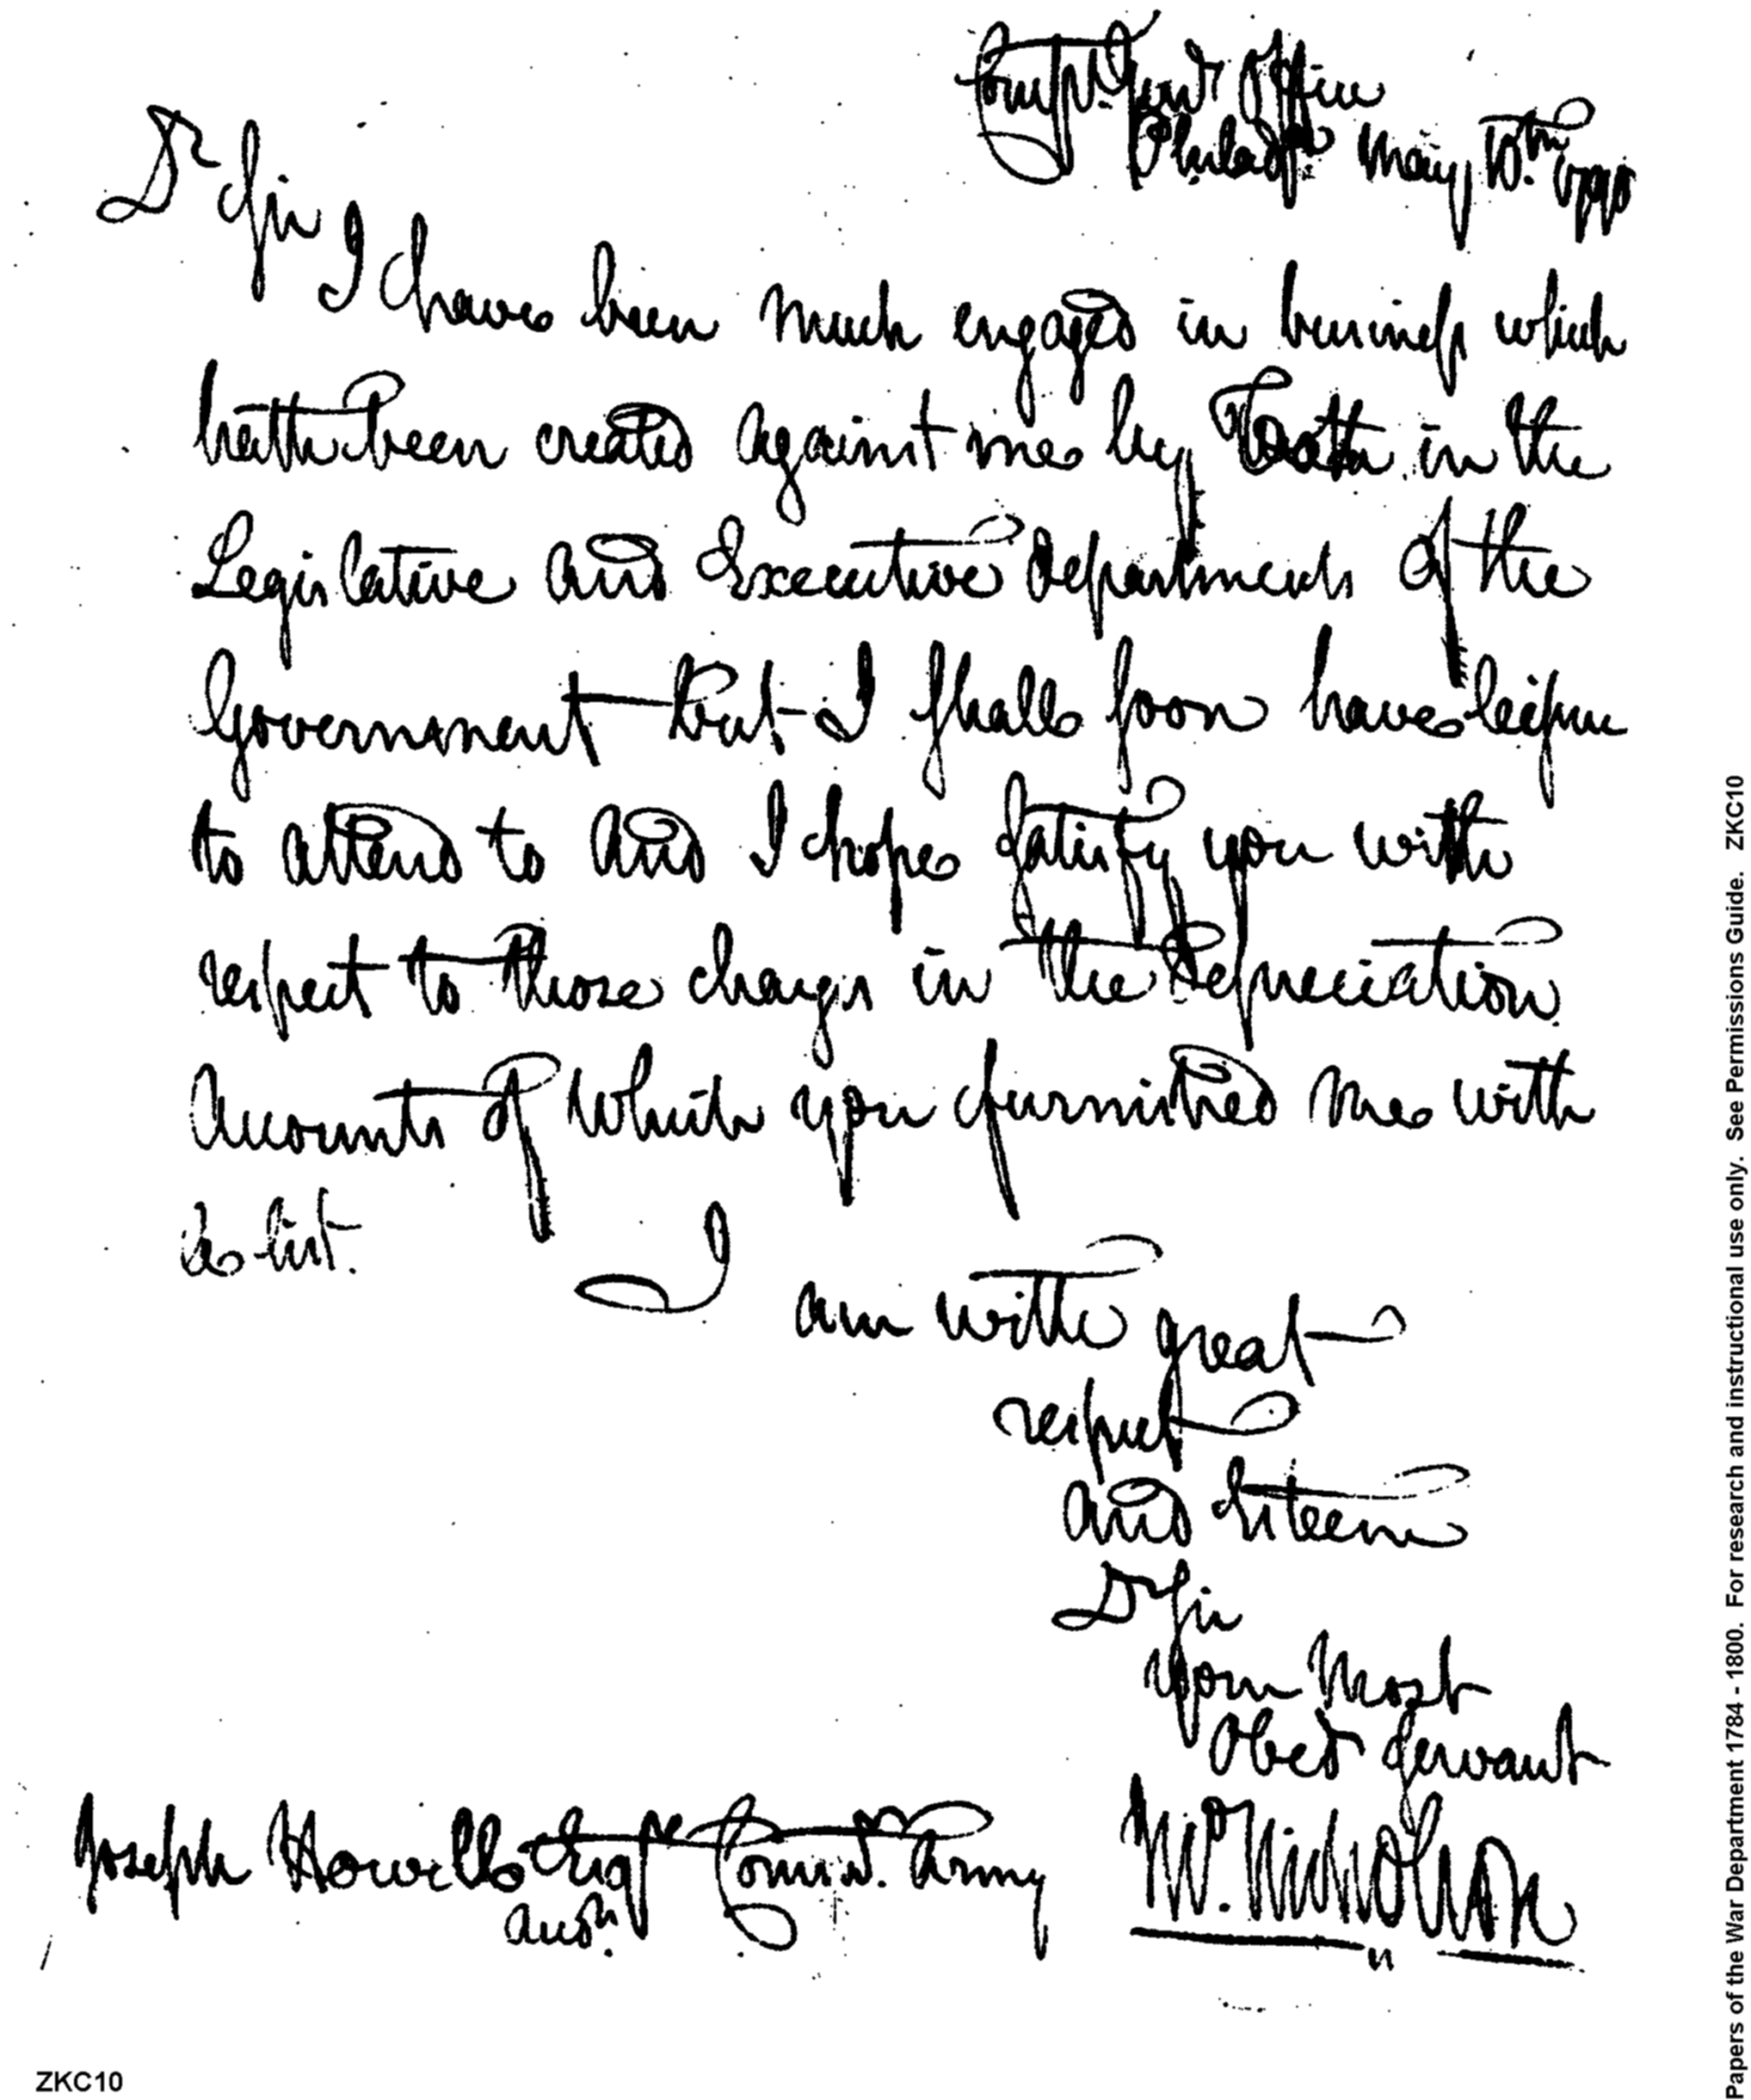 Compt. Genl Office
Philada May 10th. 1790
Dr Sir
I have been much engaged in business which
hath been created against me by both in the
Legislative and Executive departments of the
Government but I shall soon have leisure
to attend to and I hope satisfy you with
respect to those charges in the Depreciation
Accounts of which you furnished me with
a list.
I am with great
respect
and Esteem
Dr Sir
Your Most
Obed Servant
Jno. Nicholson
Joseph Howells Esqr Comr. Army
Papers of the War Department 1784 - 1800. For research and instructional use only. See Permissions Guide. ZKC10
ZKC10